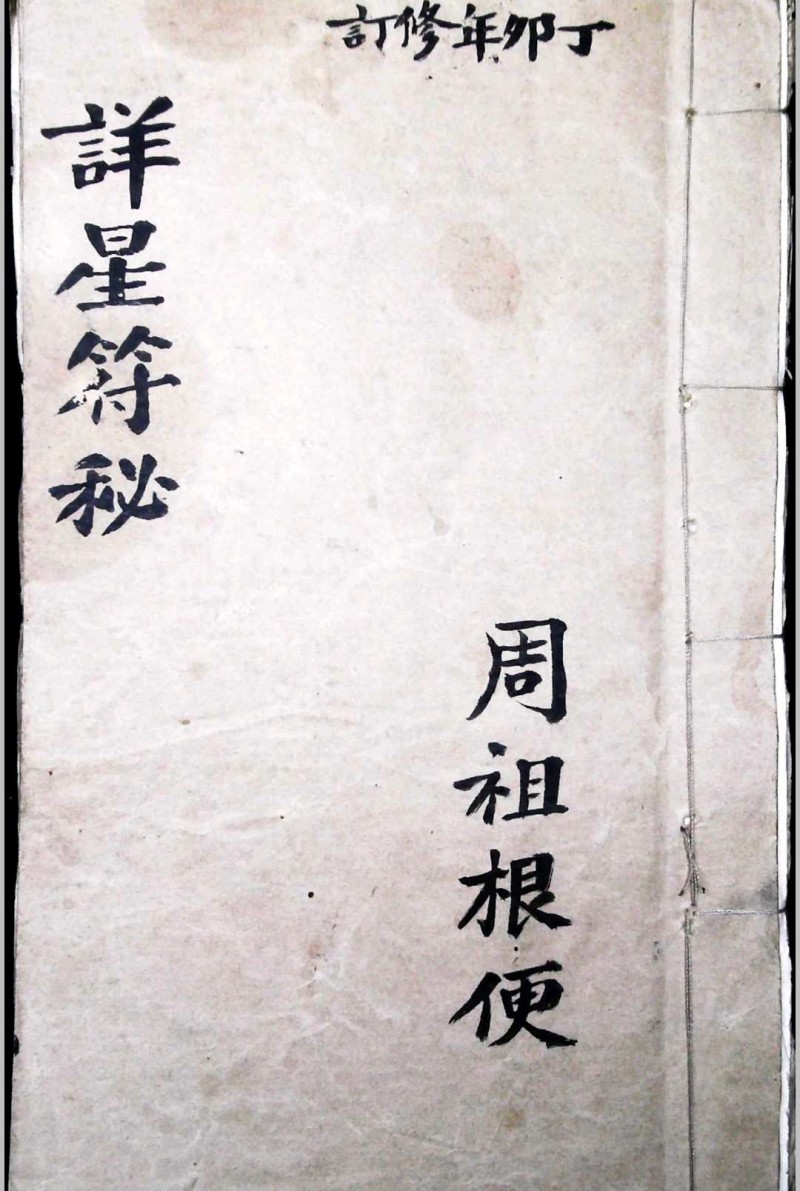 丁卯年修訂
周祖根便
詳星符秘